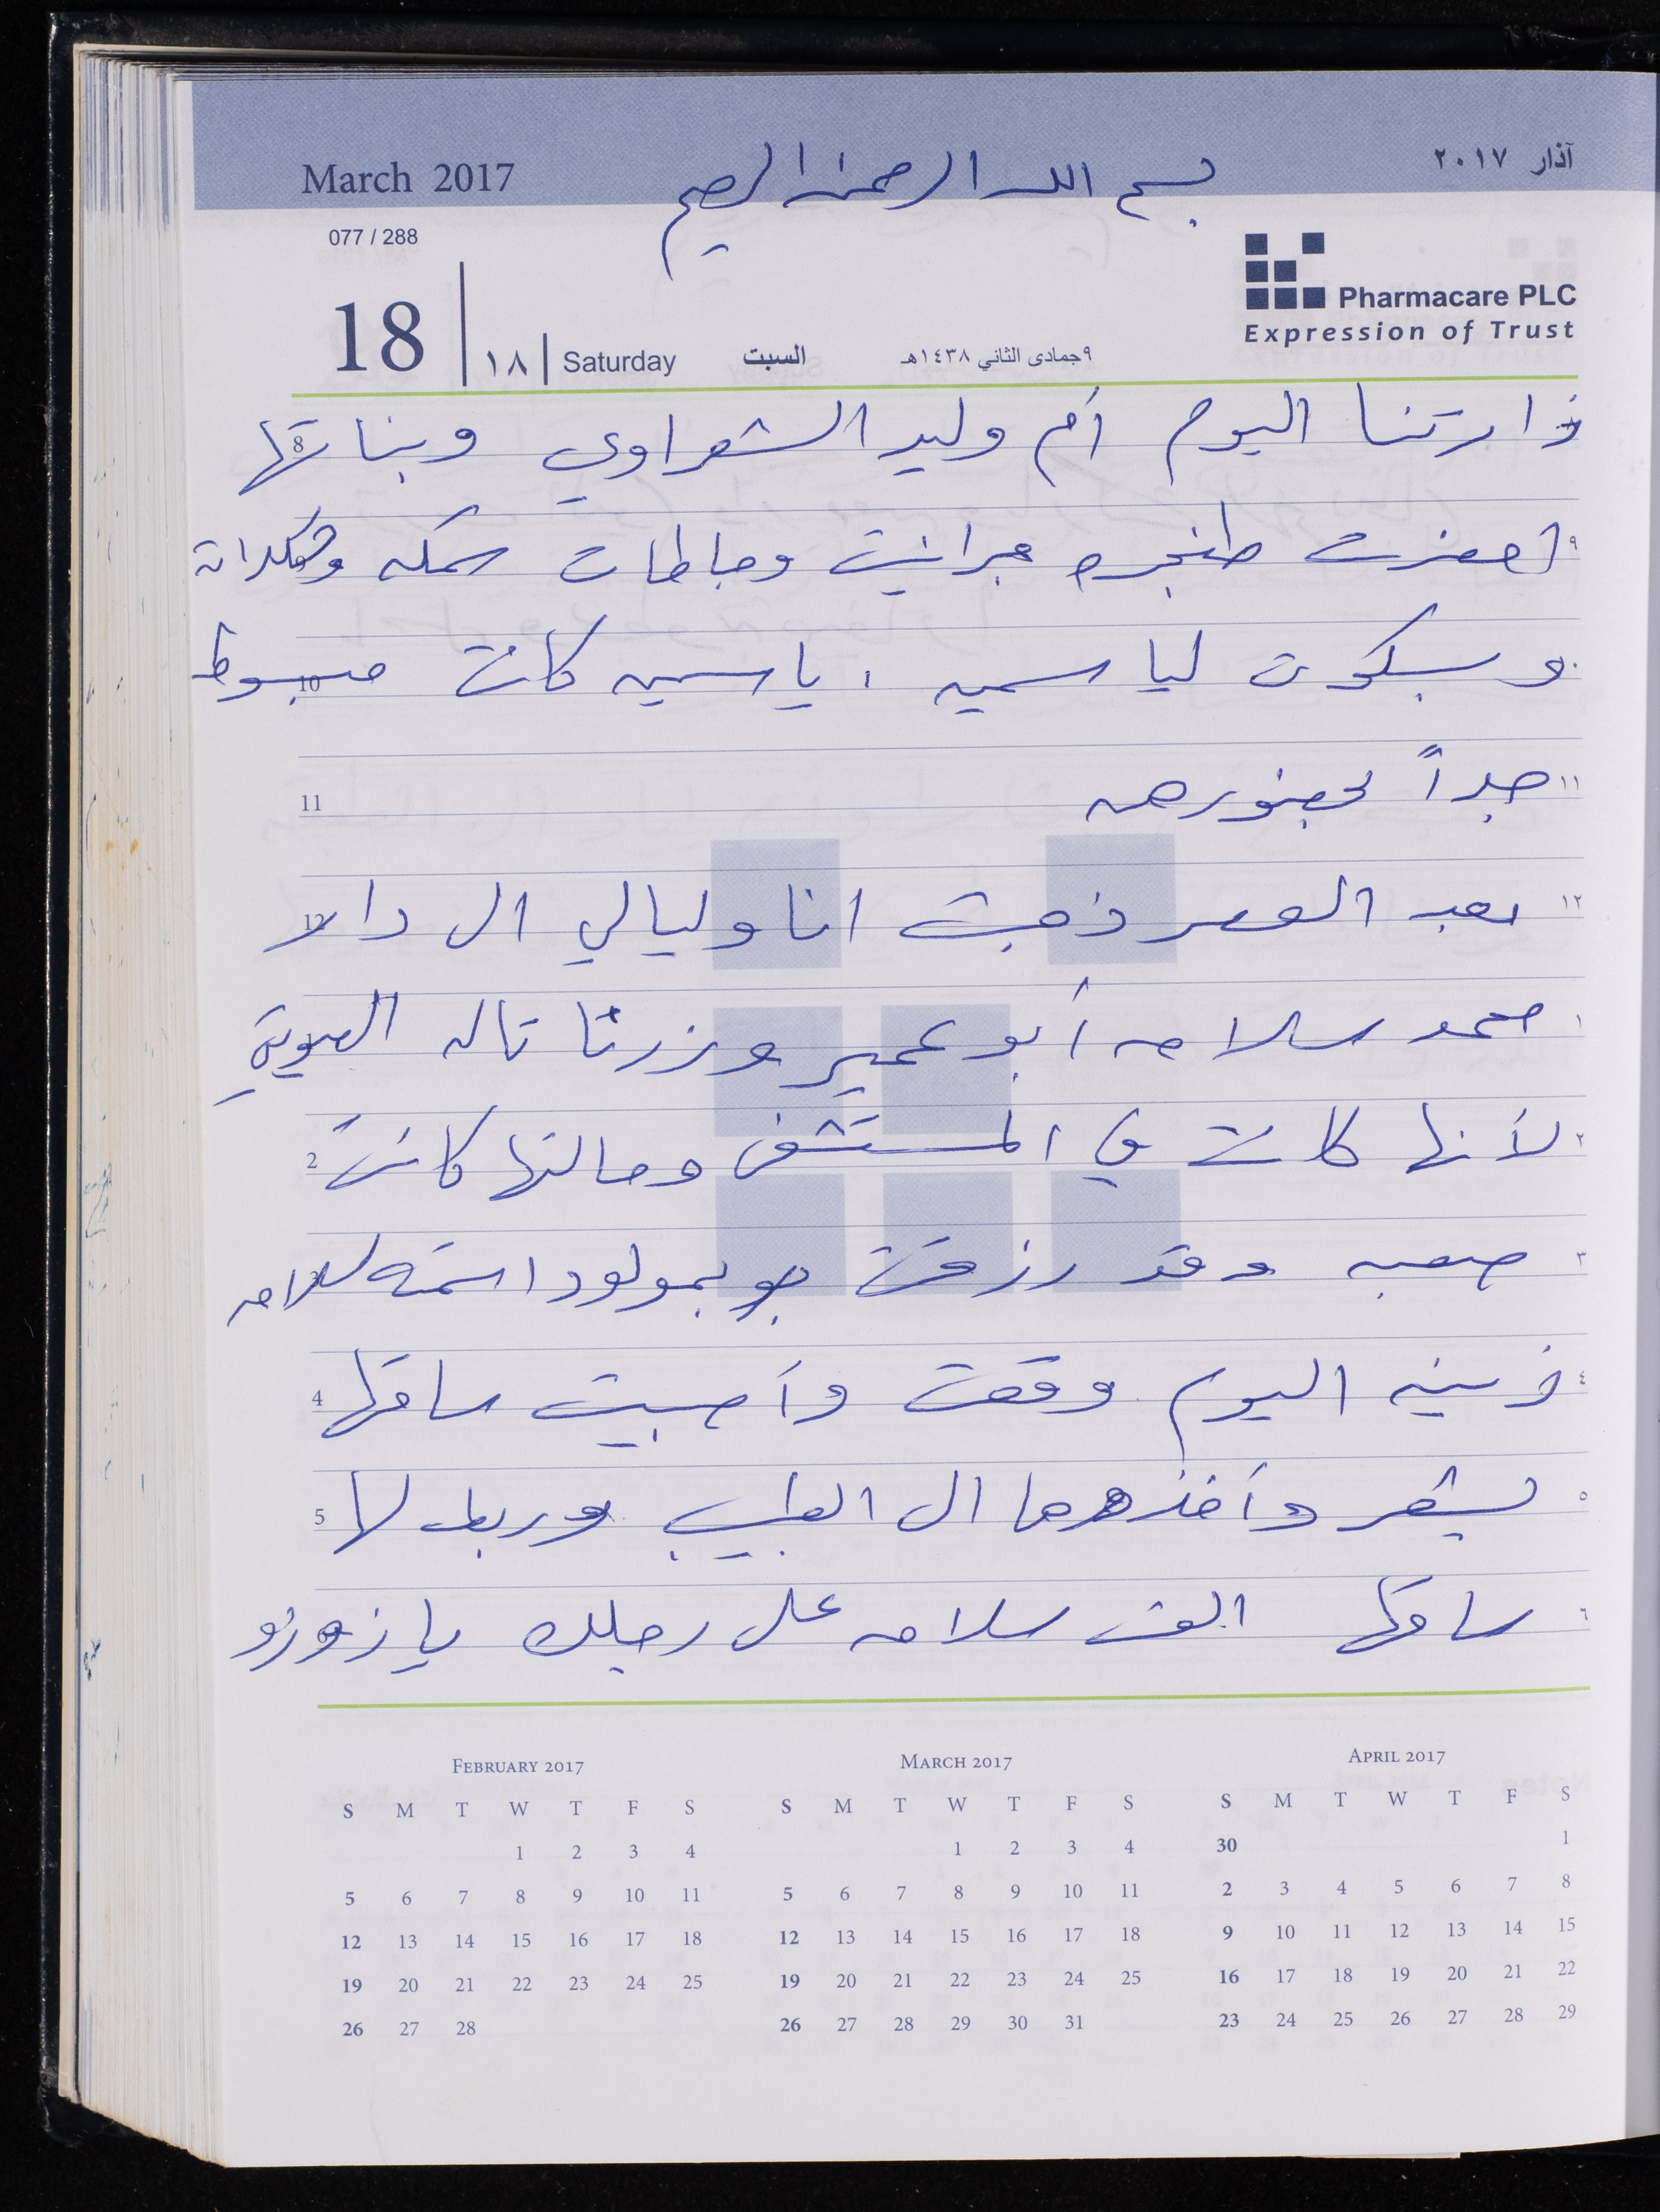 March 2017
بسم الله الرحمن الرحيم
آذار ٢٠١٧
077 / 288
Pharmacare PLC
Expression of Trust
18 ١٨ Saturday السبت ٩ جمادى الثاني ١٤٣٨هـ
زارتنا اليوم أم وليد الشعراوي وبناتها 8
٩ أحضرت طنجره مجرانيت وجاطات سمكه وشكلداته
١٠ وبسكوت لياسمين ، ياسمين كانت مبسوطه 10
١١ جداً لحضورهن 11
١٢ بعد العصر ذهبت انا وليالي الى دار 12
١ محمد سلامه أبو عمير وزرنا تاله الصويتي
٢ لأنها كانت في المستشفى وحالتها كانت 2
٣ صعبه وقد رزقت بمولود اسمته سلامه
٤ زينه اليوم وقعت وأصيبت ساقها 4
٥ بشعر وأخذوها الى الطبيب وربط لها 5
٦ ساقها الف سلامه على رجلك يا زوزو
FEBRUARY 2017
S M T W T F S
1 2 3 4
5 6 7 8 9 10 11
12 13 14 15 16 17 18
19 20 21 22 23 24 25
26 27 28
MARCH 2017
S M T W T F S
1 2 3 4
5 6 7 8 9 10 11
12 13 14 15 16 17 18
19 20 21 22 23 24 25
26 27 28 29 30 31
APRIL 2017
S M T W T F S
30 1
2 3 4 5 6 7 8
9 10 11 12 13 14 15
16 17 18 19 20 21 22
23 24 25 26 27 28 29